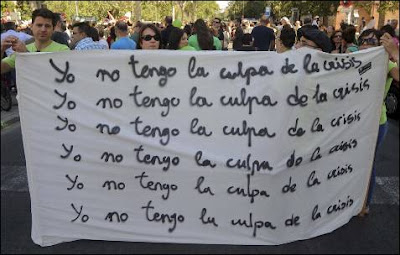 Yo no tengo la culpa de la crisis
Yo no tengo la culpa de la crisis
Yo no tengo la culpa de la crisis
Yo no tengo la culpa de la crisis
Yo no tengo la culpa de la crisis
Yo no tengo la culpa de la crisis